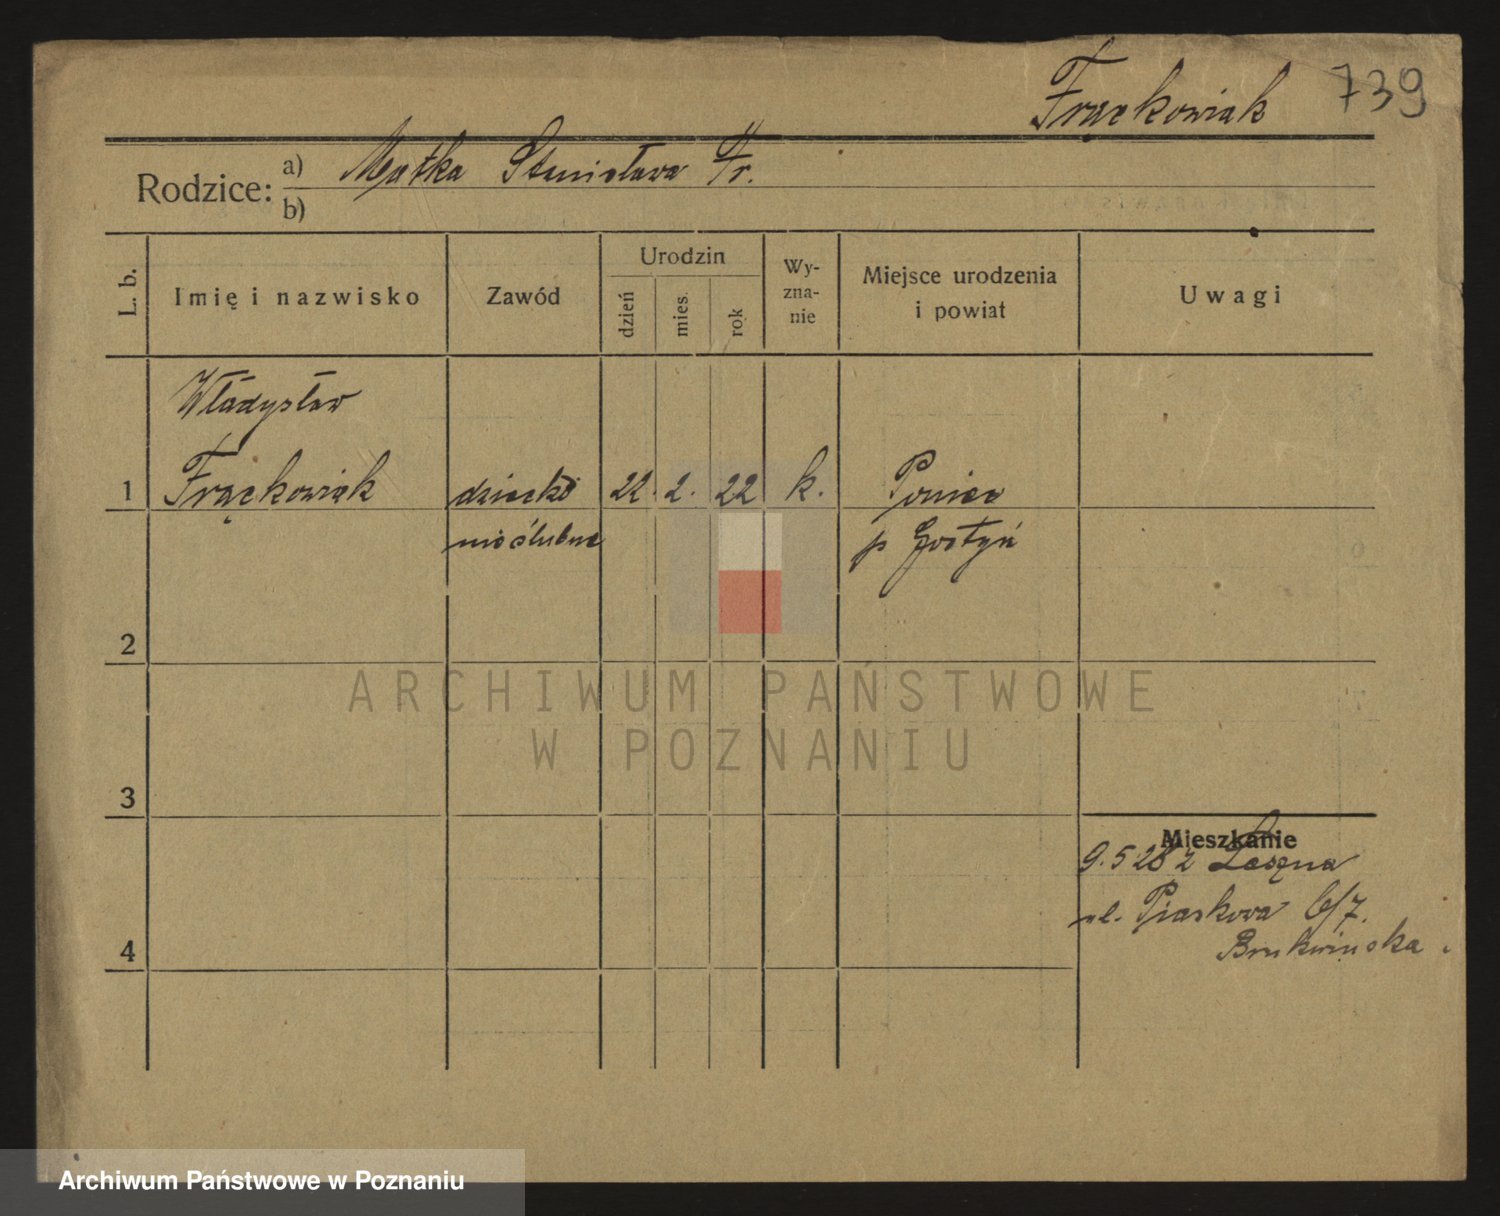 Frąckowiak 739
Rodzice: a) Matka Stanisława Fr.
b)
L. b. Imię i nazwisko Zawód Urodzin dzień mies. rok Wy-zna-nie Miejsce urodzenia i powiat Uwagi
Władysław
1 Frąckowiak dziecko 22. 2. 22 k. Poniec
nieślubne p Gostyń
2
ARCHIWUM PAŃSTWOWE
W POZNANIU
3
Mieszkanie
9.5 28 z Leszna
ul. Piaskowa 6/7.
4
Archiwum Państwowe w Poznaniu